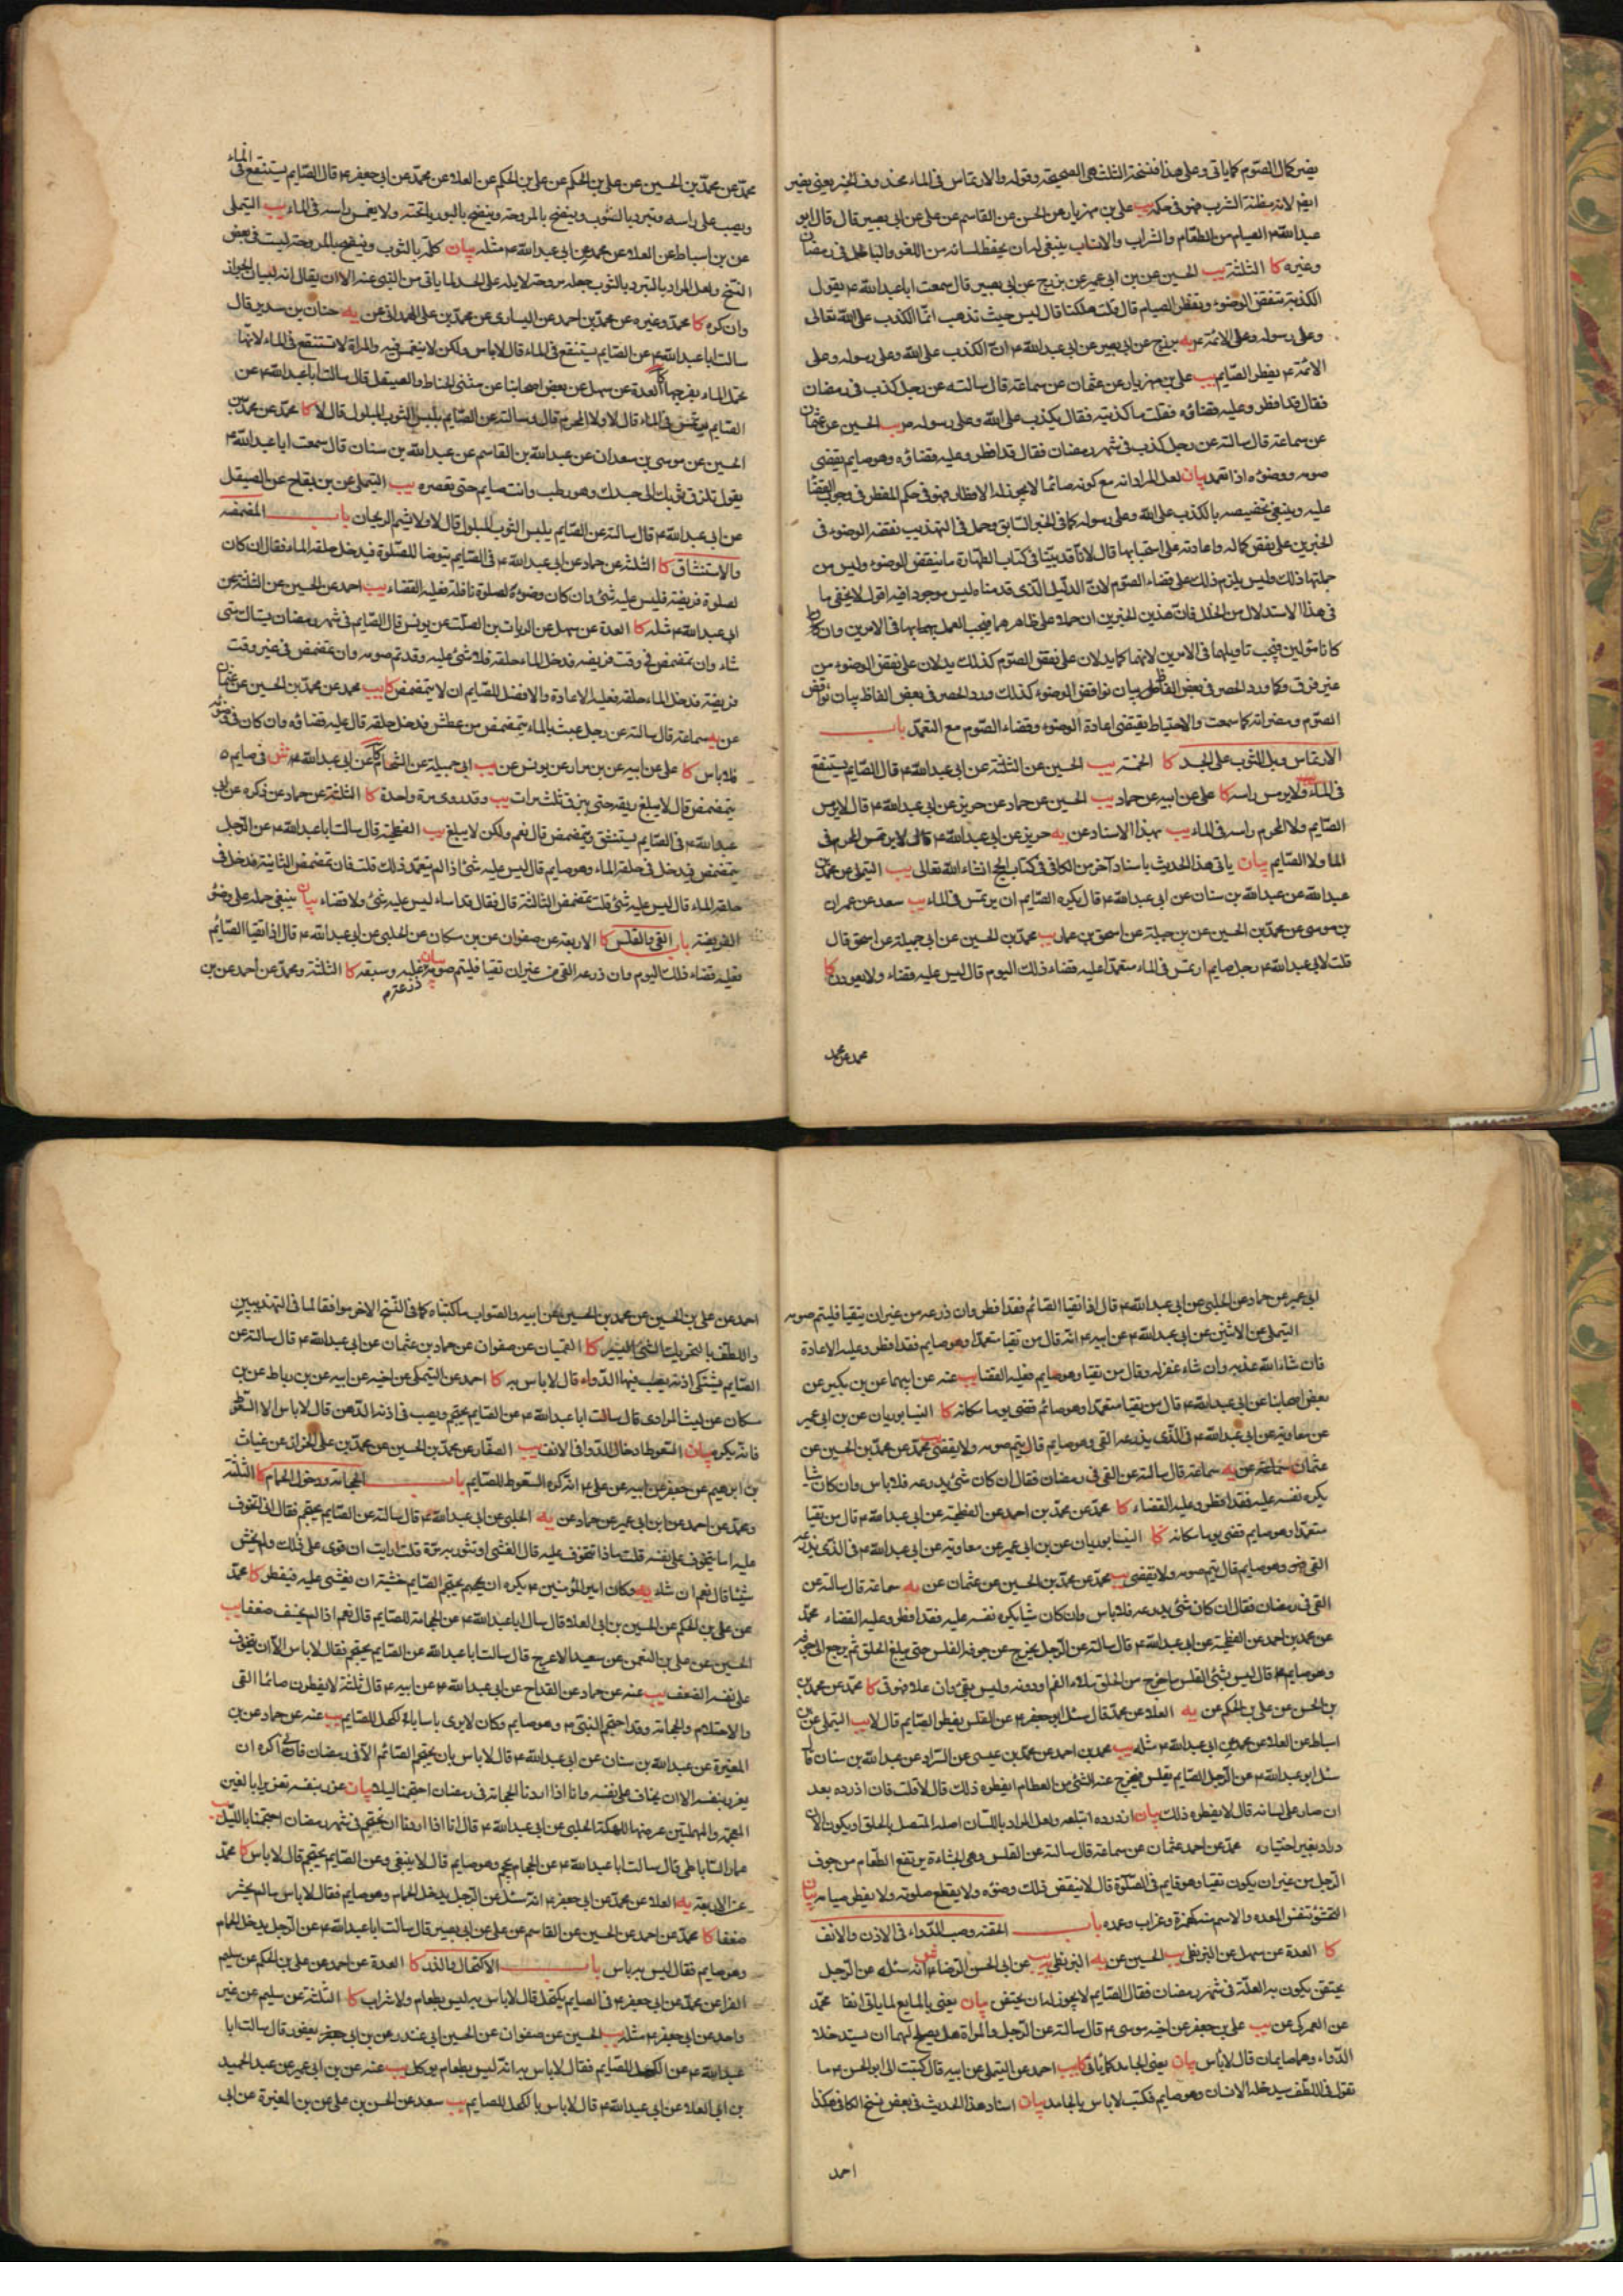 يضر كمال الصوم كما ياتى وعلى هذا فنسخة الثلث هى الصحيحة وقوله والارتماس فى الماء محذوف الخبر يعنى يضر
ايضا لانه مظنة الشرب فهو فى حكمه يب على بن مهزيار عن الحسن عن القاسم عن على عن ابى بصير قال قال ابو
عبد الله ع الصيام من الطعام والشراب والانسان ينبغى له ان يحفظ لسانه من اللغو والباطل فى رمضان
وغيره كا الثلثة يب الحسين عن بن ابى عمير عن بزرج عن ابى بصير قال سمعت ابا عبد الله ع يقول
الكذبة تنقض الوضوء وتفطر الصيام قال قلت هلكنا قال ليس حيث تذهب انما الكذب على الله تعالى
وعلى رسوله وعلى الائمة ع يه بزرج عن ابى بصير عن ابى عبد الله ع ان الكذب على الله وعلى رسوله وعلى
الائمة ع يفطر الصايم يب على بن مهزيار عن عثمان عن سماعة قال سالته عن رجل كذب فى رمضان
فقال قد افطر وعليه قضاؤه فقلت ما كذبته فقال يكذب على الله وعلى رسوله ص يب الحسين عن عثمان
عن سماعة قال سالته عن رجل كذب فى شهر رمضان فقال قد افطر وعليه قضاؤه وهو صايم يقضى
صومه ووضوءه اذا تعمد بيان لعل المراد انه مع كونه صائما لا يجوز له الافطار فهو فى حكم المفطر فى وجوب القضا
عليه وينبغى تخصيصه بالكذب على الله وعلى رسوله كما فى الخبر السابق وحمل فى التهذيب نقضه الوضوء فى
الخبرين على نقض كماله واعادته على استحبابها قال لانا قد بينا فى كتاب الطهارة ما ينقض الوضوء وليس من
جملتها ذلك وليس يلزم ذلك على قضاء الصوم لان الدليل الذى قدمناه ليس موجودا فيه اقول لا يخفى ما
فى هذا الاستدلال من الخلل فان هذين الخبرين ان حملا على ظاهرهما فيجب العمل بهما بها فى الامرين وان
كانا مؤولين فيجب تاويلها فى الامرين لانهما كما يدلان على نقض الصوم كذلك يدلان على نقض الوضوء من
غير فرق وكما ورد الحصر فى بعض الفاظ بيان نواقض الوضوء كذلك ورد الحصر فى بعض الفاظ بيان نواقض
الصوم ومضراته كما سمعت والاحتياط يقتضى اعادة الوضوء وقضاء الصوم مع التعمد باب
الارتماس وبل الثوب على الجسد كا الخمسة يب الحسين عن الثلثة عن ابى عبد الله ع قال الصايم يستنقع
فى الماء ولا يرمس راسه كا على عن ابيه عن حماد يب الحسين عن حماد عن حريز عن ابى عبد الله ع قال لا يرمس
الصايم ولا المحرم راسه فى الماء يب بهذا الاسناد عن يه حريز عن ابى عبد الله ع قال لا يرتمس المحرم فى
الماء ولا الصايم بيان ياتى هذا الحديث باسناد آخر من الكافى فى كتاب الحج انشاء الله تعالى يب التيملى عن محمد بن
عبد الله عن عبد الله بن سنان عن ابى عبد الله ع قال يكره الصايم ان يرتمس فى الماء يب سعد عن عمران
بن موسى عن محمد بن الحسين عن بن جبلة عن اسحق بن عمار يب محمد بن الحسين عن ابى جميلة عن اسحق قال
قلت لابى عبد الله ع رجل صايم ارتمس فى الماء متعمدا عليه قضاء ذلك اليوم قال ليس عليه قضاء ولا يعودن كا
محمد عن محمد
محمد عن محمد بن الحسين عن على بن الحكم عن على بن الحكم عن العلاء عن محمد عن ابى جعفر ع قال الصايم يستنقع فى الماء
ويصب على راسه ويتبرد بالثوب وينضح بالمروحة وينضح البوريا تحته ولا يغمس راسه فى الماء يب التيملى
عن بن اسباط عن العلاء عن محمد عن ابى عبد الله ع مثله بيان كلمة بالثوب وينضح بالمروحة ليست فى بعض
النسخ ولعل المراد بالتبرد بالثوب جعله مروحة لا بله على الجسد لما ياتى من النهى عنه الا ان يقال انه لبيان الجواز
وان كره كا محمد وغيره عن محمد بن احمد عن السيارى عن محمد بن على الهمدانى عن يه حنان بن سدير قال
سالت ابا عبد الله ع عن الصايم يستنقع فى الماء قال لا باس ولكن لا ينغمس فيه والمراة لا تستنقع فى الماء لانها
تحمل الماء بفرجها كا العدة عن سهل عن بعض اصحابنا عن مثنى الحناط والصيقل قال سالت ابا عبد الله ع عن
الصايم يرتمس فى الماء قال لا ولا المحرم قال وسالته عن الصايم يلبس الثوب المبلول قال لا كا محمد عن محمد بن
الحسين عن موسى بن سعدان عن عبد الله بن القاسم عن عبد الله بن سنان قال سمعت ابا عبد الله ع
يقول لا تلزق ثوبك الى جسدك وهو رطب وانت صايم حتى تعصره يب التيملى عن بن بقاح عن الصيقل
عن ابى عبد الله ع قال سالته عن الصايم يلبس الثوب المبلول قال لا ولا يشم الريحان باب المضمضة
والاستنشاق كا الثلثة عن حماد عن ابى عبد الله ع فى الصايم يتوضا للصلوة فيدخل حلقه الماء فقال ان كان
لصلوة فريضة فليس عليه شئ وان كان وضوءه لصلوة نافلة فعليه القضاء يب احمد عن الحسين عن الثلثة عن
ابى عبد الله ع مثله كا العدة عن سهل عن الريان بن الصلت عن يونس قال الصايم فى شهر رمضان يستاك متى
شاء وان تمضمض فى وقت فريضة فدخل الماء حلقه فلا شئ عليه وقد تم صومه وان تمضمض فى غير وقت
فريضة فدخل الماء حلقه فعليه الاعادة والافضل للصايم ان لا يتمضمض كا يب محمد عن محمد بن الحسين عن عثمان
عن يه سماعة قال سالته عن رجل عبث بالماء يتمضمض من عطش فدخل حلقه قال عليه قضاؤه وان كان فى وضوء
فلا باس كا على عن ابيه عن بن مرار عن يونس عن يب ابى جميلة عن الشحام عن ابى عبد الله ع فى صايم
يتمضمض قال لا يبلع ريقه حتى يبزق ثلث مرات يب وقد روى مرة واحدة كا الثلثة عن حماد عن ذكره عن ابى
عبد الله ع فى الصايم يستنشق ويتمضمض قال نعم ولكن لا يبلغ يب الفطحية قال سالت ابا عبد الله ع عن الرجل
يتمضمض فيدخل فى حلقه الماء وهو صايم قال ليس عليه شئ اذا لم يتعمد ذلك قلت فان تمضمض الثانية فدخل فى
حلقه الماء قال ليس عليه شئ قلت تمضمض الثالثة قال فقال قد اساء ليس عليه شئ ولا قضاء بيان ينبغى حمله على وضوء
الفريضة باب القى والقلس كا الاربعة عن صفوان عن بن مسكان عن الحلبى عن ابى عبد الله ع قال اذا تقيا الصائم
فعليه قضاء ذلك اليوم وان ذرعه القى من غير ان تقيا فليتم صومه بيان ذرعه غلبه وسبقه كا الثلثة ومحمد عن احمد عن بن
ابى عمير عن حماد عن الحلبى عن ابى عبد الله ع قال اذا تقيا الصائم فقد افطر وان ذرعه من غير ان يتقيا فليتم صومه
التيملى عن الاثنين عن ابى عبد الله ع عن ابيه ع انه قال من تقيا متعمدا وهو صايم فقد افطر وعليه الاعادة
فان شاء الله عذبه وان شاء غفر له وقال من تقيا وهو صايم فعليه القضا يب عنه عن ابيهما عن بن بكير عن
بعض اصحابنا عن ابى عبد الله ع قال من تقيا متعمدا وهو صائم قضى يوما مكانه كا النيسابوريان عن بن ابى عمير
عن معاوية عن ابى عبد الله ع فى الذى يذرعه القى وهو صايم قال يتم صومه ولا يقضى يب محمد عن محمد بن الحسين عن
عثمان عن يه سماعة قال سالته عن القى فى رمضان فقال ان كان شئ يبدره فلا باس وان كان شيا
يكره نفسه عليه فقد افطر وعليه القضاء كا محمد عن محمد بن احمد عن الفطحية عن ابى عبد الله ع قال من تقيا
متعمدا وهو صايم قضى يوما مكانه كا النيسابوريان عن بن ابى عمير عن معاوية عن ابى عبد الله ع فى الذى يذرعه
القى وهو صايم قال يتم صومه ولا يقضى يب محمد عن محمد بن الحسين عن عثمان عن يه سماعة قال سالته عن
القى فى رمضان فقال ان كان شئ يبدره فلا باس وان كان شيا يكره نفسه عليه فقد افطر وعليه القضاء محمد
عن محمد بن احمد عن الفطحية عن ابى عبد الله ع قال سالته عن الرجل يخرج من جوفه القلس حتى يبلغ الحلق ثم يرجع الى جوفه
وهو صايم قال ليس بشئ القلس ما خرج من الحلق ملاء الفم او دونه وليس بقئ وان علا فهو قى كا محمد عن محمد بن
بن الحسن عن على بن الحكم عن يه العلاء عن محمد قال سئل ابو جعفر ع عن القلس يفطر الصايم قال لا يب التيملى عن بن
اسباط عن العلاء عن محمد عن ابى عبد الله ع مثله يب محمد بن احمد عن محمد بن عيسى عن السراد عن عبد الله بن سنان قال
سئل ابو عبد الله ع عن الرجل الصايم يقلس فيخرج عنه الشئ من الطعام ايفطره ذلك قال لا قلت فان ازدرده بعد
ان صار على لسانه قال لا يفطره ذلك بيان ازدرده ابتلعه ولعل المراد باللسان اصله المتصل بالحلق او يكون الاز
دراد بغير اختياره محمد عن احمد عثمان عن سماعة قال سالته عن القلس وهى الجشاءة يرتفع الطعام من جوف
الرجل من غير ان يكون تقيا وهو قايم فى الصلوة قال لا ينقض ذلك وضوءه ولا يقطع صلوته ولا يفطر صيامه بيان
التجشؤ تنفس المعده والاسم كهمزة وغراب وعمده باب الحقنة وصب الدواء فى الاذن والانف
كا العدة عن سهل عن البزنطى يب الحسين عن يه البزنطى يب عن ابى الحسن الرضا ع انه سئله عن الرجل
يحتقن يكون به العلة فى شهر رمضان فقال الصايم لا يجوز له ان يحتقن بيان يعنى بالمايع لما ياتى انفا محمد
عن العمركى عن يب على بن جعفر عن اخيه موسى ع قال سالته عن الرجل والمراة هل يصلح لهما ان يستدخلا
الدواء وهما صايمان قال لا باس بيان يعنى الجامد كما ياتى كا يب احمد عن التيملى عن ابيه قال كتبت الى ابى الحسن ع ما
تقول فى اللطف يستدخله الانسان وهو صايم فكتب لا باس بالجامد بيان اسناد هذا الحديث فى بعض نسخ الكافى هكذا
احمد
احمد عن على بن الحسين عن محمد بن الحسين عن ابيه والصواب ما كتبناه كما فى النسخ الاخر موافقا لما فى التهذيبين
واللطف بالتحريك الشئ اليسير كا القميان عن صفوان عن حماد بن عثمان عن ابى عبد الله ع قال سالته عن
الصايم يشتكى اذنه يصب فيها الدواء قال لا باس به كا احمد عن التيملى عن اخيه عن ابيه عن بن رباط عن بن
مسكان عن ليث المرادى قال سالت ابا عبد الله ع عن الصايم يحتجم ويصب فى اذنه الدهن قال لا باس الا السعوط
فانه يكره بيان السعوط ادخال الدواء فى الانف يب الصفار عن محمد بن الحسين عن محمد بن على الخزاز عن غياث
بن ابرهيم عن جعفر عن ابيه عن على ع انه كره السعوط للصايم باب الحجامة ودخول الحمام كا الثلثة
ومحمد عن احمد عن ابن ابى عمير عن حماد عن يه الحلبى عن ابى عبد الله ع قال سالته عن الصايم يحتجم فقال انى اتخوف
عليه اما يتخوف على نفسه قلت ماذا تتخوف عليه قال الغشى او تثور به مرة قلت ارايت ان قوى على ذلك ولم يخش
شيئا قال نعم ان شاء يه وكان امير المؤمنين ع يكره ان يحتجم الصايم خشية ان يغشى عليه فيفطر كا محمد
عن على بن الحكم عن الحسين بن ابى العلاء قال سال ابا عبد الله ع عن الحجامة للصايم قال نعم اذا لم يخف ضعفا يب
الحسين عن على بن النعمن عن سعيد الاعرج قال سالت ابا عبد الله عن الصايم يحتجم فقال لا باس الا ان يتخوف
على نفسه الضعف يب عنه عن حماد عن القداح عن ابى عبد الله ع عن ابيه ع قال ثلثة لا يفطرن صائما القى
والاحتلام والحجامة وقد احتجم النبى ص وهو صايم وكان لا يرى باسا بالكحل للصايم يب عنه عن حماد عن بن
المغيرة عن عبد الله بن سنان عن ابى عبد الله ع قال لا باس بان يحتجم الصائم الا فى رمضان فانى اكره ان
يغرر بنفسه الا ان يخاف على نفسه وانا اذا اردنا الحجامة فى رمضان احتجمنا ليلا بيان غرر بنفسه تغريرا بالغين
المعجمة والمهملتين عرضها للهلكة الحلبى عن ابى عبد الله ع قال انا اذا اردنا ان نحتجم فى شهر رمضان احتجمنا بالليل يب
عمار الساباطى قال سالت ابا عبد الله ع عن الحجام يحجم وهو صايم قال لا ينبغى وعن الصايم يحتجم قال لا باس كا محمد
عن الاربعة يه العلاء عن محمد عن ابى جعفر ع انه سئل عن الرجل يدخل الحمام وهو صايم فقال لا باس ما لم يخش
ضعفا كا محمد عن احمد عن الحسين عن القاسم عن على عن ابى بصير قال سالت ابا عبد الله ع عن الرجل يدخل الحمام
وهو صايم فقال ليس به باس باب الاكتحال والذر كا العدة عن احمد عن على بن الحكم عن سليم
الفرا عن محمد عن ابى جعفر ع فى الصايم يكتحل قال لا باس به ليس بطعام ولا شراب كا الثلثة عن سليم عن غير
واحد عن ابى جعفر ع مثله يب الحسين عن صفوان عن الحسين ابى غندر عن بن ابى يعفور قال سالت ابا
عبد الله ع عن الكحل للصايم فقال لا باس به انه ليس بطعام يوكل يب عنه عن بن ابى عمير عن عبد الحميد
بن ابى العلاء عن ابى عبد الله ع قال لا باس بالكحل للصايم يب سعد عن الحسن بن على عن بن المغيرة عن ابى